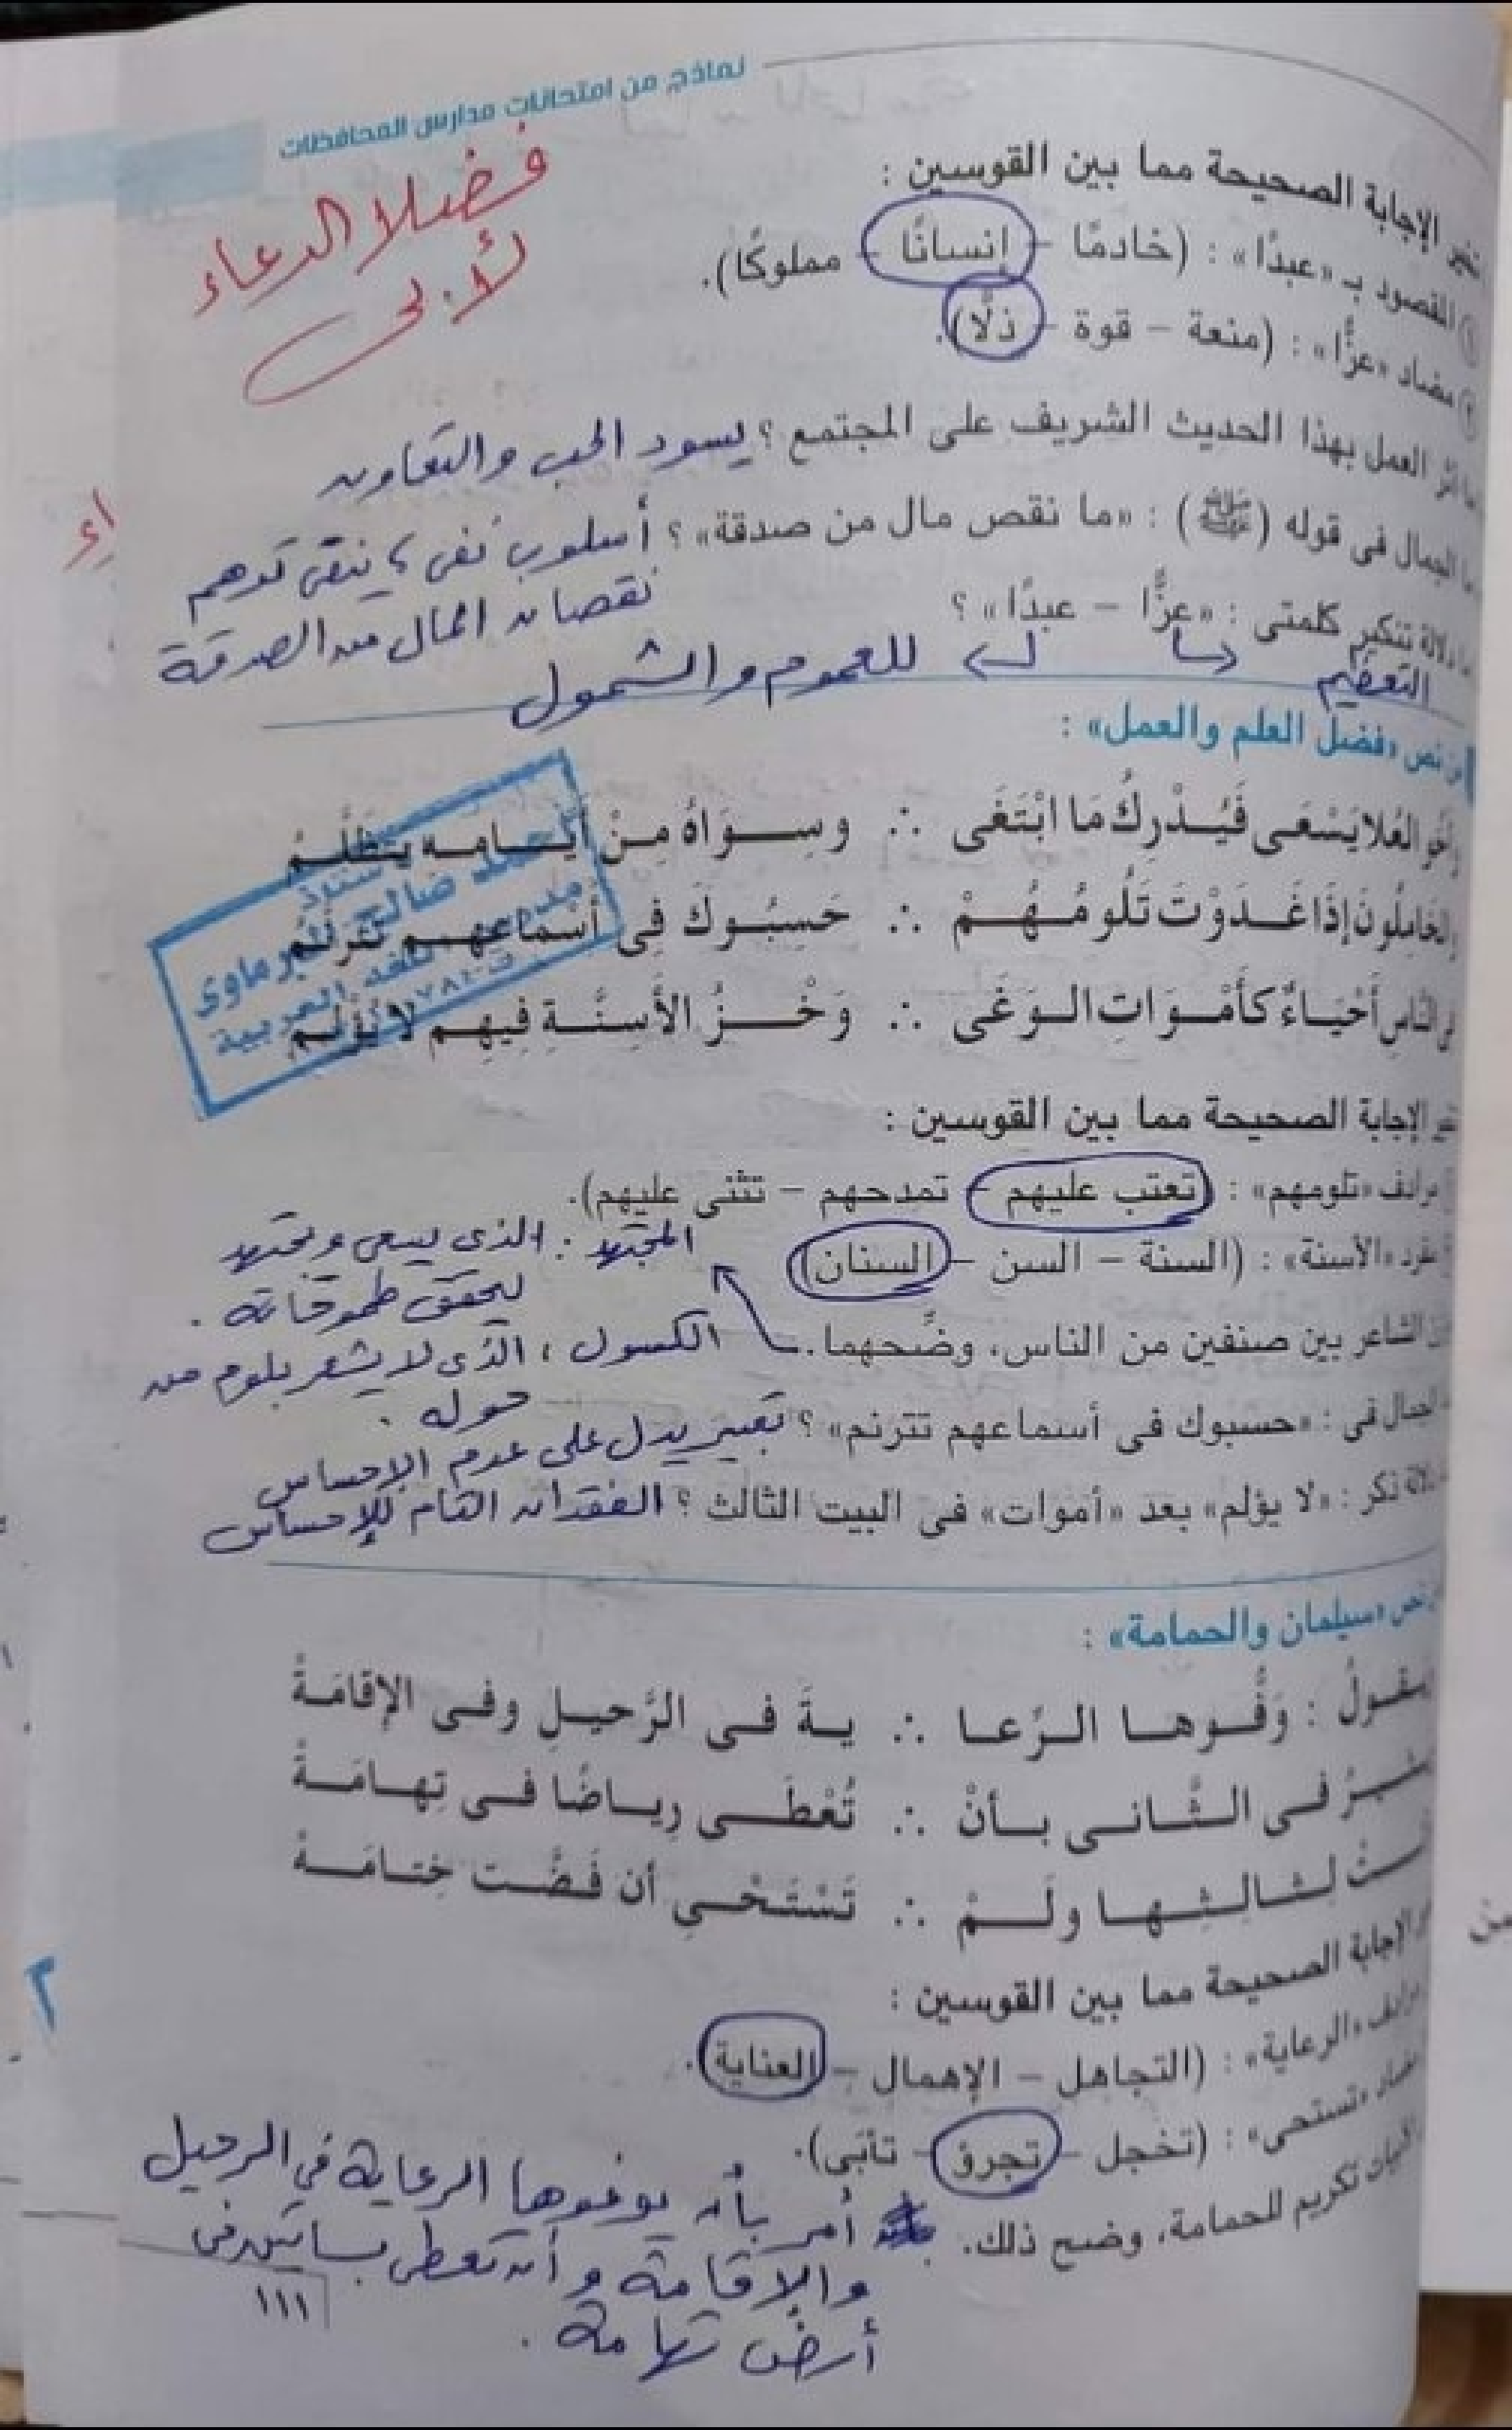 نماذج من امتحانات مدارس المحافظات
فضلا الدعاء
لأبى
تخير الإجابة الصحيحة مما بين القوسين :
١ المقصود بـ «عبدًا» : (خادمًا – إنسانًا – مملوكًا).
٢ مضاد «عزًّا» : (منعة – قوة – ذلًّا).
ما أثر العمل بهذا الحديث الشريف على المجتمع ؟ يسود الحب والتعاون
ما الجمال فى قوله (ﷺ) : «ما نقص مال من صدقة» ؟ أسلوب نفى ، ينفى توهم
نقصان المال من الصدقة
ما دلالة تنكير كلمتى : «عزًّا – عبدًا» ؟
التعظيم للعموم والشمول
من نص «فضل العلم والعمل» :
وأخو العُلا يَسْعَى فَيُدْرِكُ مَا ابْتَغَى ∴ وسِوَاهُ مِنْ أيَّامه يتظَلَّمُ
والخَامِلُونَ إذَا غَدَوْتَ تَلُومُهُمْ ∴ حَسِبُوكَ فِى أسْماعهم تَترنَّمُ
فى النَّاسِ أحْيَاءٌ كأَمْوَاتِ الوَغَى ∴ وَخْزُ الأَسِنَّةِ فِيهِم لا يُؤْلِمُ
مدرس اللغة العربية
تخير الإجابة الصحيحة مما بين القوسين :
مرادف «تلومهم» : (تعتب عليهم – تمدحهم – تثنى عليهم).
مفرد «الأسنة» : (السنة – السن – السنان)
المجتهد : الذى يسعى ويجتهد
ليحقق طموحاته .
الشاعر بين صنفين من الناس، وضَّحهما.
الكسول ، الذى لا يشعر بلوم من
حوله .
الجمال فى : «حسبوك فى أسماعهم تترنم» ؟ تعبير يدل على عدم الإحساس
دلالة ذكر : «لا يؤلم» بعد «أموات» فى البيت الثالث ؟ الفقدان التام للإحساس
من نص «سليمان والحمامة» :
يقولُ : وَفُّوها الرِّعا ∴ يةَ فى الرَّحيلِ وفى الإقامَةْ
ويشيرُ فى الثَّانى بأنْ ∴ تُعْطَى رِياضًا فى تِهامَةْ
لثالثِها ولَمْ ∴ تَسْتَحْىِ أن فَضَّت خِتامَهْ
تخير الإجابة الصحيحة مما بين القوسين :
مرادف «الرعاية» : (التجاهل – الإهمال – العناية).
مضاد «تستحى» : (تخجل – تجرؤ – تأبى).
الأبيات تكريم للحمامة، وضح ذلك. أمر بأن يوفوها الرعاية في الرحيل
والإقامة وأن تعطى بساتين فى
أرض تهامة .
١١١